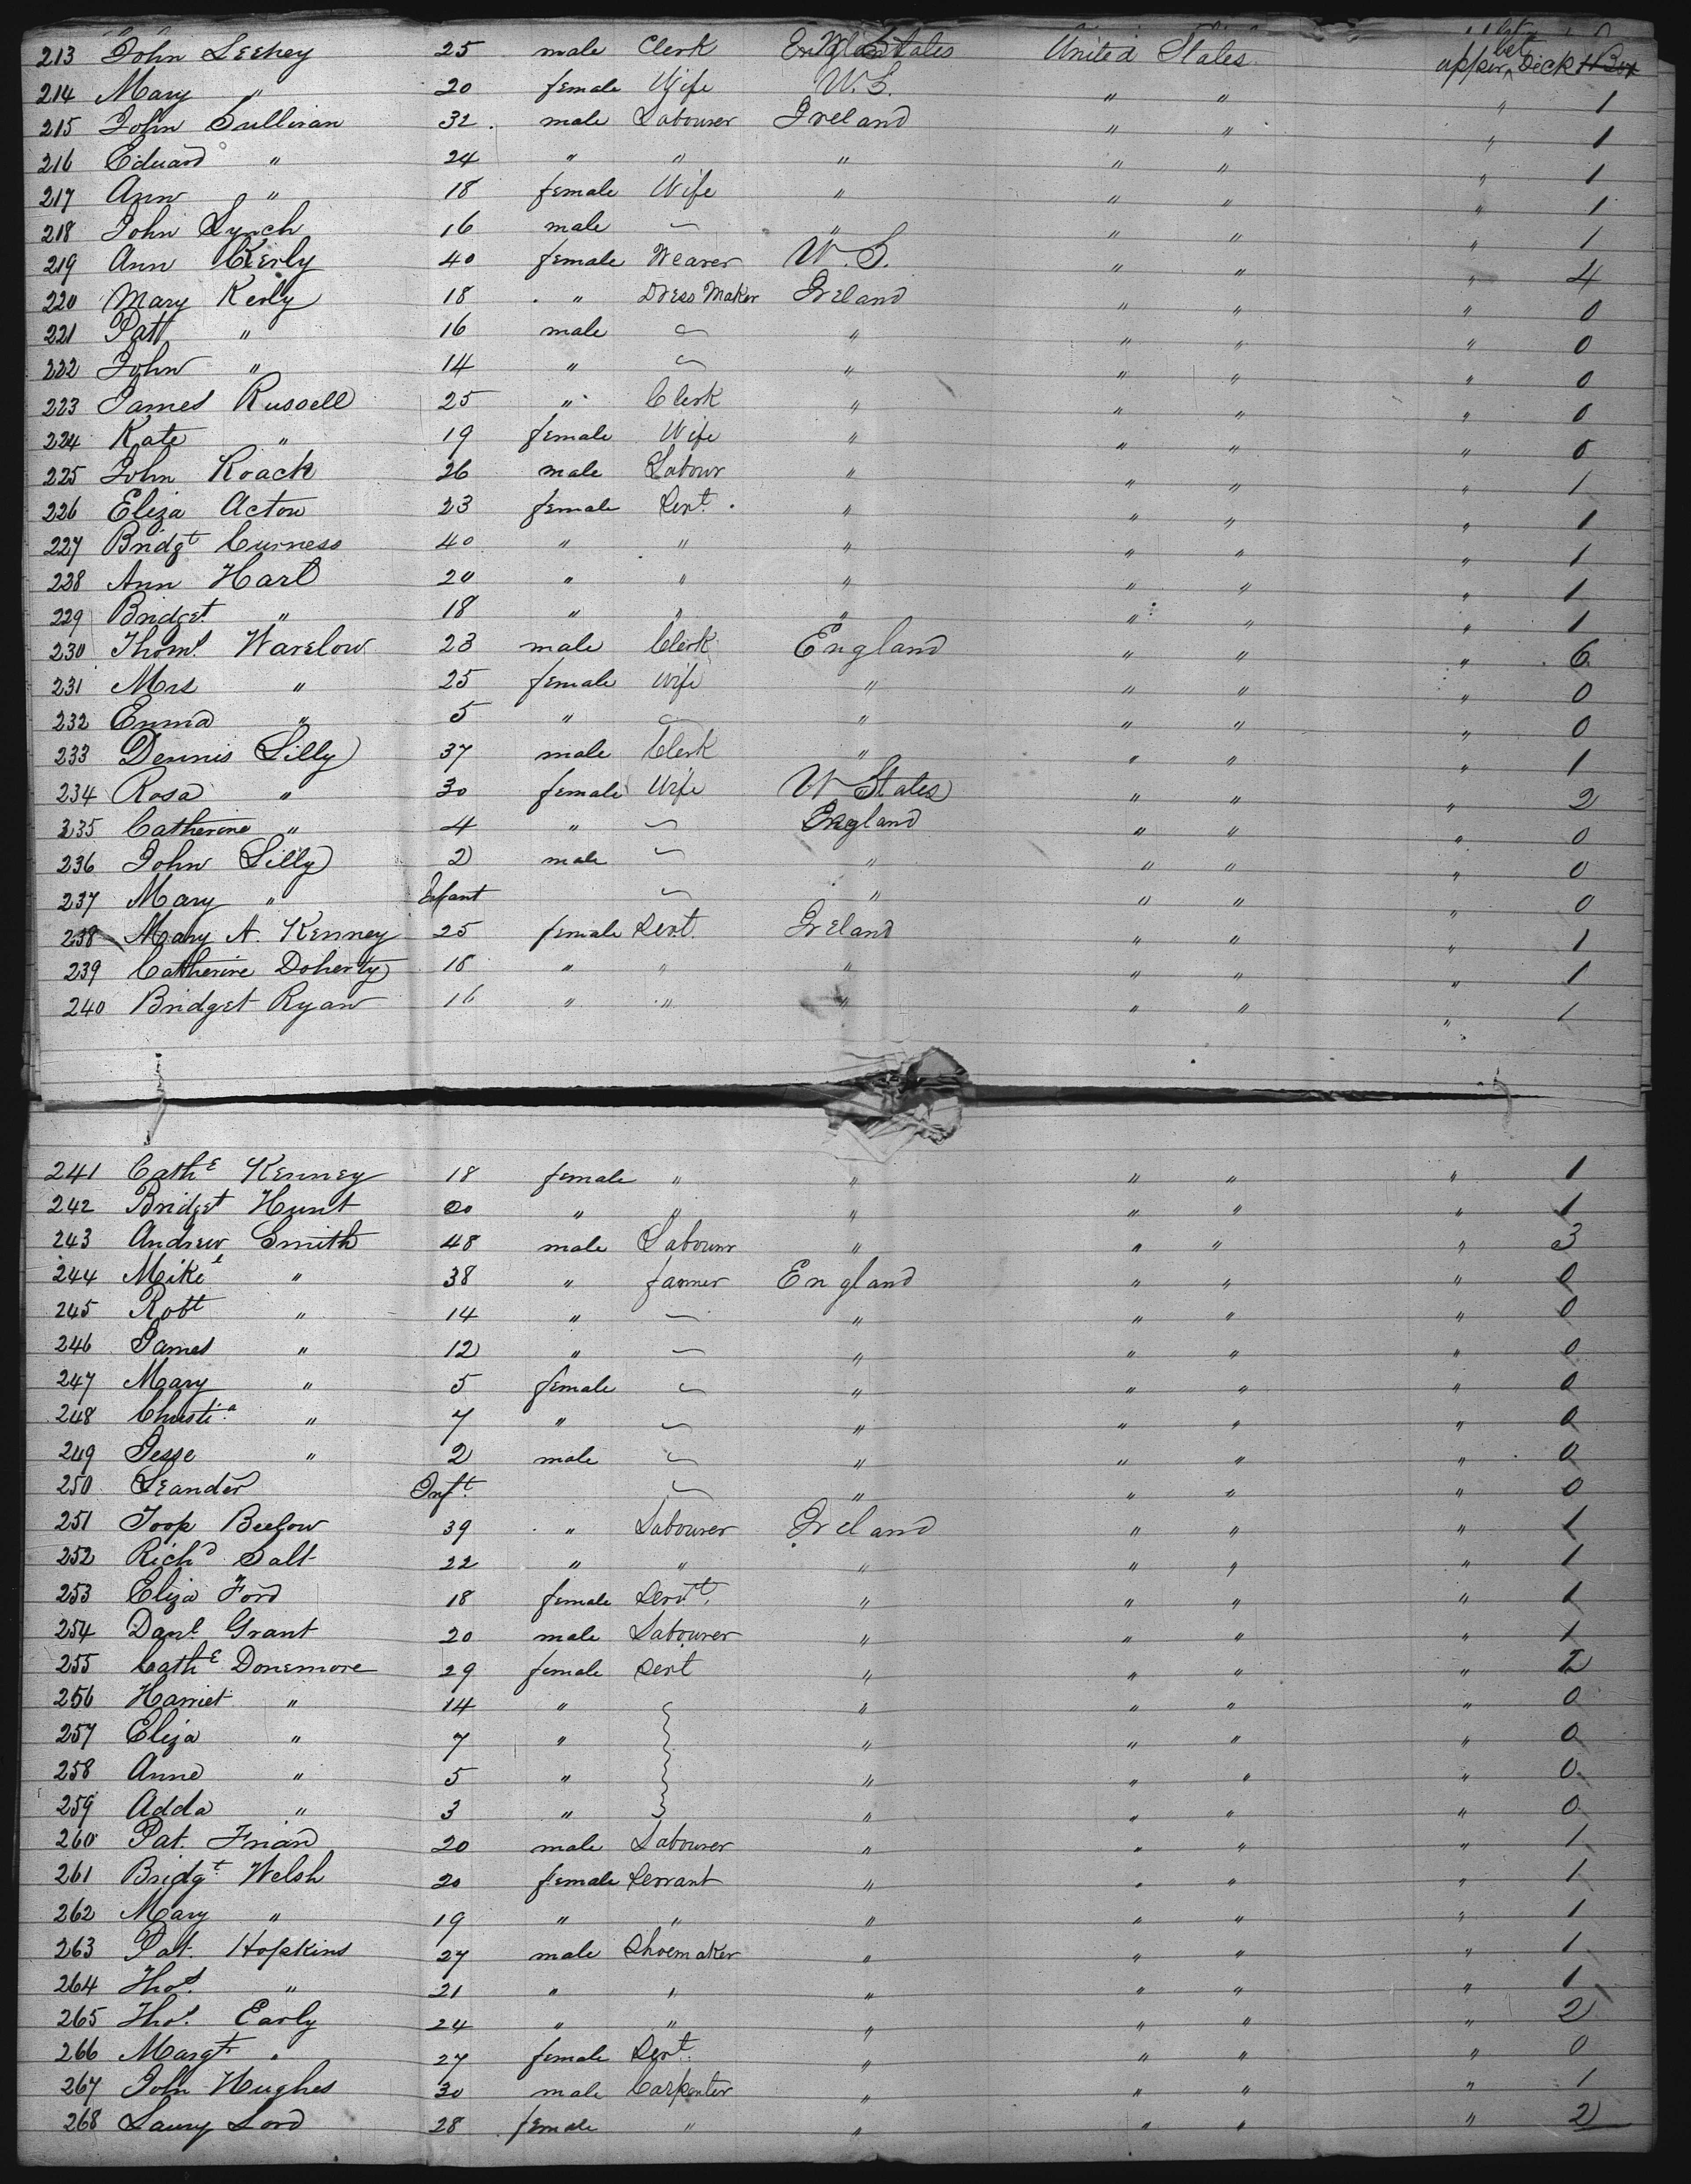 213 John Leehey 25 male Clerk England States United States upper bet Deck 1 Box
214 Mary " 20 female Wife U.S. " " " 1
215 John Sullivan 32 male Labourer Ireland " " " 1
216 Eduard " 24 " " " " " " 1
217 Ann " 18 female Wife " " " " 1
218 John Lynch 16 male — " " " " 1
219 Ann Kerly 40 female Weaver U.S. " " " 4
220 Mary Kerly 18 " Dress Maker Ireland " " " 0
221 Patt " 16 male — " " " " 0
222 John " 14 " — " " " " 0
223 James Russell 25 " Clerk " " " " 0
224 Kate " 19 female Wife " " " " 0
225 John Roach 26 male Labour " " " " 1
226 Eliza Acton 23 female Servt. " " " " 1
227 Bridgt Curness 40 " " " " " " 1
228 Ann Hart 20 " " " " " " 1
229 Bridget " 18 " " " " " " 1
230 Thoms. Warelow 23 male Clerk England " " " 6
231 Mrs " 25 female Wife " " " " 0
232 Emma " 5 " — " " " " 0
233 Dennis Lilly 37 male Clerk " " " " 1
234 Rosa " 30 female Wife U States " " " 2
235 Catherine " 4 " — England " " " 0
236 John Lilly 2 male — " " " " 0
237 Mary " Infant — " " " " 0
238 Mary A. Kenney 25 female Servt. Ireland " " " 1
239 Catherine Doherty 18 " " " " " " 1
240 Bridget Ryan 16 " " " " " " 1
241 Cathe Kenney 18 female " " " " " 1
242 Bridget Hunt 20 " " " " " " 1
243 Andrew Smith 48 male Labourer " " " " 3
244 Mike " 38 " farmer England " " " 0
245 Robt " 14 " — " " " " 0
246 James " 12 " — " " " " 0
247 Mary " 5 female — " " " " 0
248 Christi.a " 7 " — " " " " 0
249 Jesse " 2 male — " " " " 0
250 Leander Inft. — " " " " 0
251 Joop Beelow 39 " Labourer Ireland " " " 1
252 Richd Salt 22 " " " " " " 1
253 Eliza Ford 18 female Servt. " " " " 1
254 Danl Grant 20 male Labourer " " " " 1
255 Cathe Donemore 29 female Servt " " " " 2
256 Harriet " 14 " " " " " 0
257 Eliza " 7 " " " " " 0
258 Anne " 5 " " " " " 0
259 Adda " 3 " " " " " 0
260 Pat. Friard 20 male Labourer " " " " 1
261 Bridgt Welsh 20 female Servant " " " " 1
262 Mary " 19 " " " " " " 1
263 Pat. Hopkins 27 male Shoemaker " " " " 1
264 Thos. " 21 " " " " " " 1
265 Thos. Early 24 " " " " " " 2
266 Margt " 27 female Servt. " " " " 0
267 John Hughes 30 male Carpenter " " " " 1
268 Laury Lord 28 female " " " " " 2